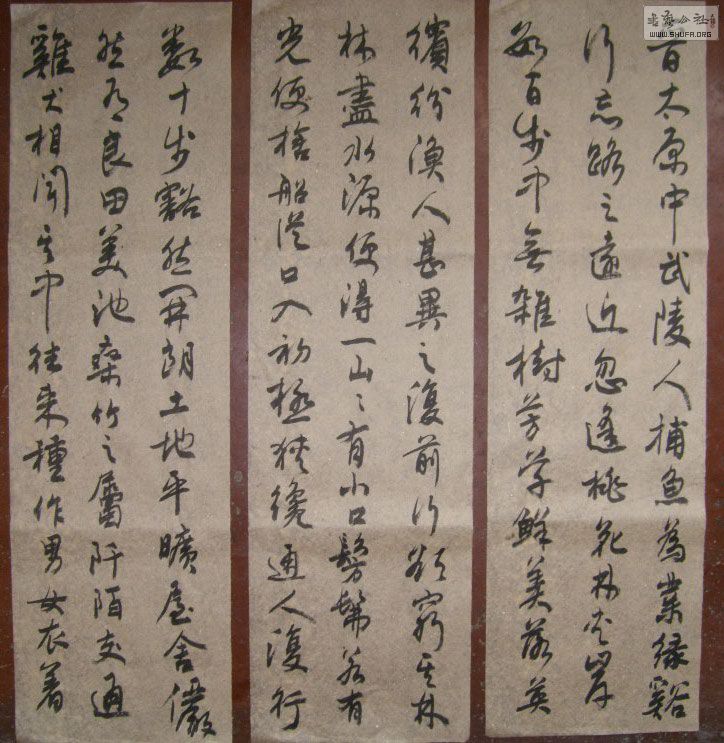 书法公社
WWW.SHUFA.ORG
晋太原中武陵人捕魚為業緣谿
行忘路之遠近忽逢桃花林夾岸
数百步中無雜樹芳草鮮美落英
繽紛漁人甚異之復前行欲窮其林
林盡水源便得一山〻有小口髣髴若有
光便捨船從口入初極狹纔通人復行
数十步豁然開朗土地平曠屋舍儼
然有良田美池桑竹之屬阡陌交通
雞犬相聞其中往来種作男女衣著